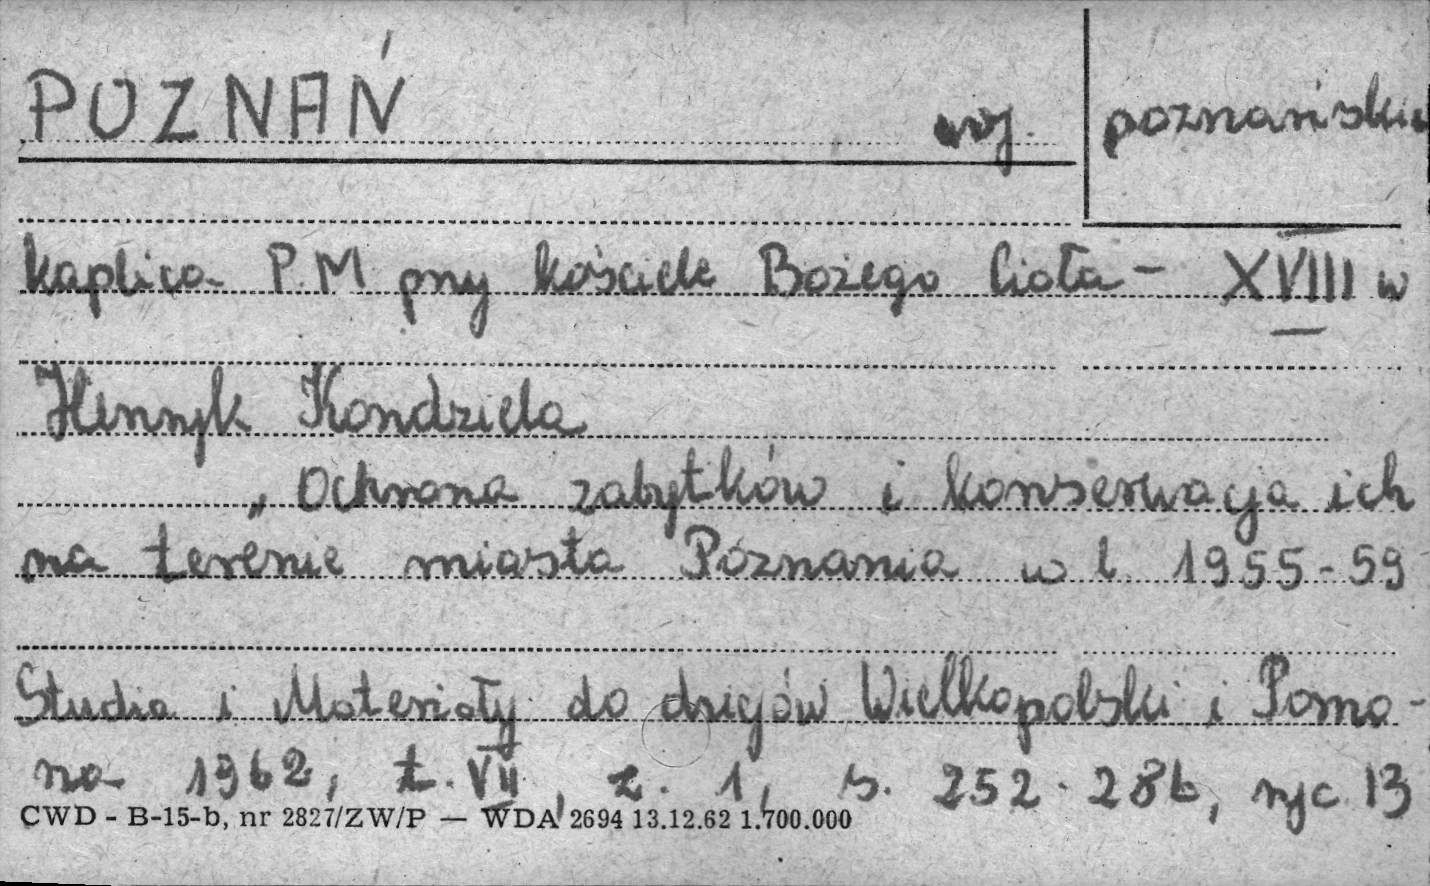 POZNAŃ woj. poznańskie
Kaplica P.M przy kościele Bożego Ciała - XVIII w
Henryk Kondziela
„Ochrona zabytków i konserwacja ich
na terenie miasta Poznania w l. 1955-59
Studia i Materiały do dziejów Wielkopolski i Pomo-
rza 1962, t. VII, z. 1, s. 252-286, ryc 13
CWD - B-15-b, nr 2827/ZW/P — WDA 2694 13.12.62 1.700.000